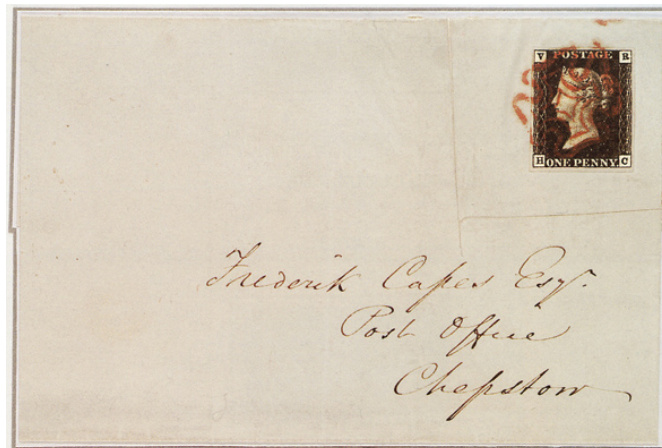 V POSTAGE R
H ONE PENNY. C
Frederik Capes Esqr.
Post Office
Chepstow